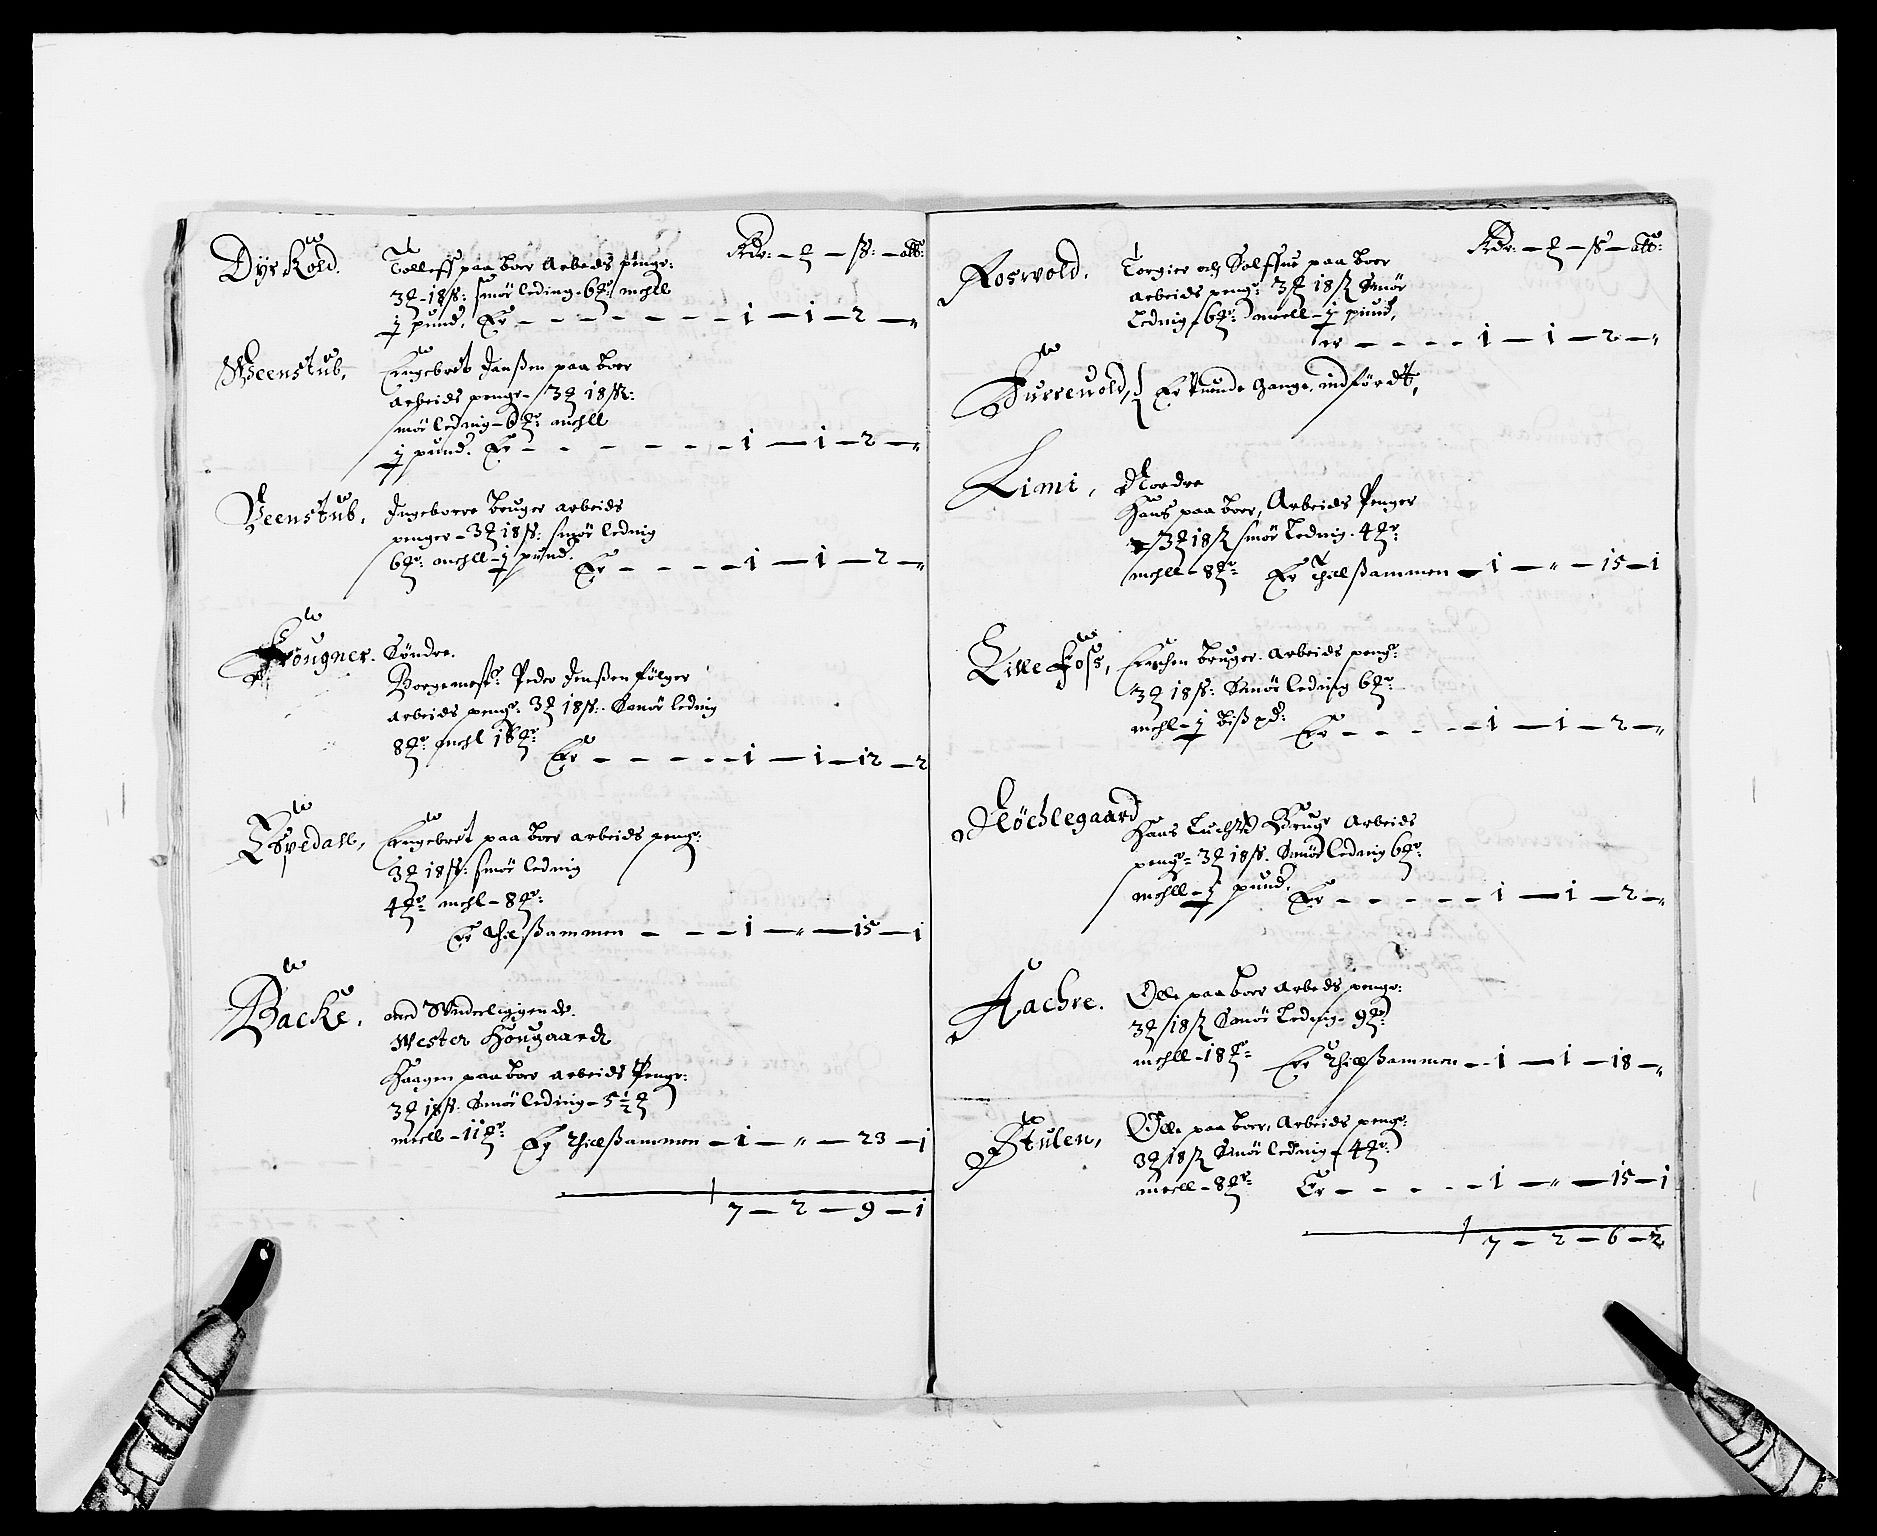 Rdr: — ꝛ — ß: — alb:
Dyrkold. Tolleff paa boer Arbeds pengr:
3ꝛ - 18ß: smör leding - 6 mehll
j pund, Er — — — 1 — 1 — 2 — "
Weenstub, Engebret Janßen paa boer
Arbeids pengr - 3ꝛ 18ß:
smör lednig - 6 mehll
j pund. Er — — — 1 — 1 — 2 — "
Veenstub, Ingeborre bruger arbeids
penger - 3ꝛ 18ß: smör lednig
6 mehll - j pund. Er — — — 1 — 1 — 2 — "
Frougner. Söndre.
Borgemestr: Peder Jenßen fölger
arbeids pengr: 3ꝛ 18ß: Smör lednig
8 mehl 16 Er — — — 1 — 1 — 12 — 2
Espedall, Engebret paa boer arbeids pengr:
3ꝛ 18ß: smör lednig
4 mehl - 8
Er thilßammen — — 1 — " — 15 — 1
Backe, med Vnderliggende.
Wester Hougaard
Haagen paa boer arbeids Pengr:
3ꝛ 18ß: Smör leding - 5½
meell - 11 Er thilßammen — 1 — " — 23 — 1
7 — 2 — 9 — 1
Rdr: — ꝛ — ß — alb:
Roswold, Torgier och Solffue paa boer
arbeids pengr: 3ꝛ 18ß Smör
Lednig 6 meell - j pund,
er — — — 1 — 1 — 2 — "
Furreuold, Er tuende Gange, indfördt,
Limi, Nordre
Hans paa boer, Arbeids Penger
3ꝛ 18ß smör Lednig. 4
mehll - 8 Er Thilßammen — 1 — " — 15 — 1
Lille Foss, Erichen bruger. arbeids pengr:
3ꝛ 18ß: Smör leding 6
mehl - j bißpd: Er — — — 1 — 1 — 2 — "
Nöchlegaard Hans Bruger Arbeids
pengr - 3ꝛ 18ß. Smör lednig 6
mehll - j pund, Er — — — 1 — 1 — 2 — "
Aachre. Olle paa boer Arbeds pengr:
3ꝛ 18ß Smör Lednig - 9
mehll - 18 Er thilßammen — 1 — 1 — 18 — "
Stulen, Olle paa boer, Arbeids pengr:
3ꝛ 18ß Smör lednig - 4
meell - 8 Er — — — 1 — " — 15 — 1
7 — 2 — 6 — 2